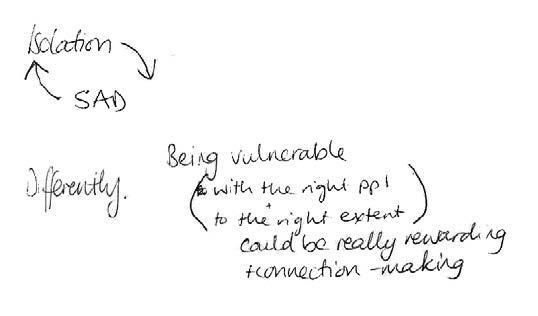 Isolation
SAD
Being vulnerable
Differently.
with the right ppl
+
to the right extent
could be really rewarding
+connection-making